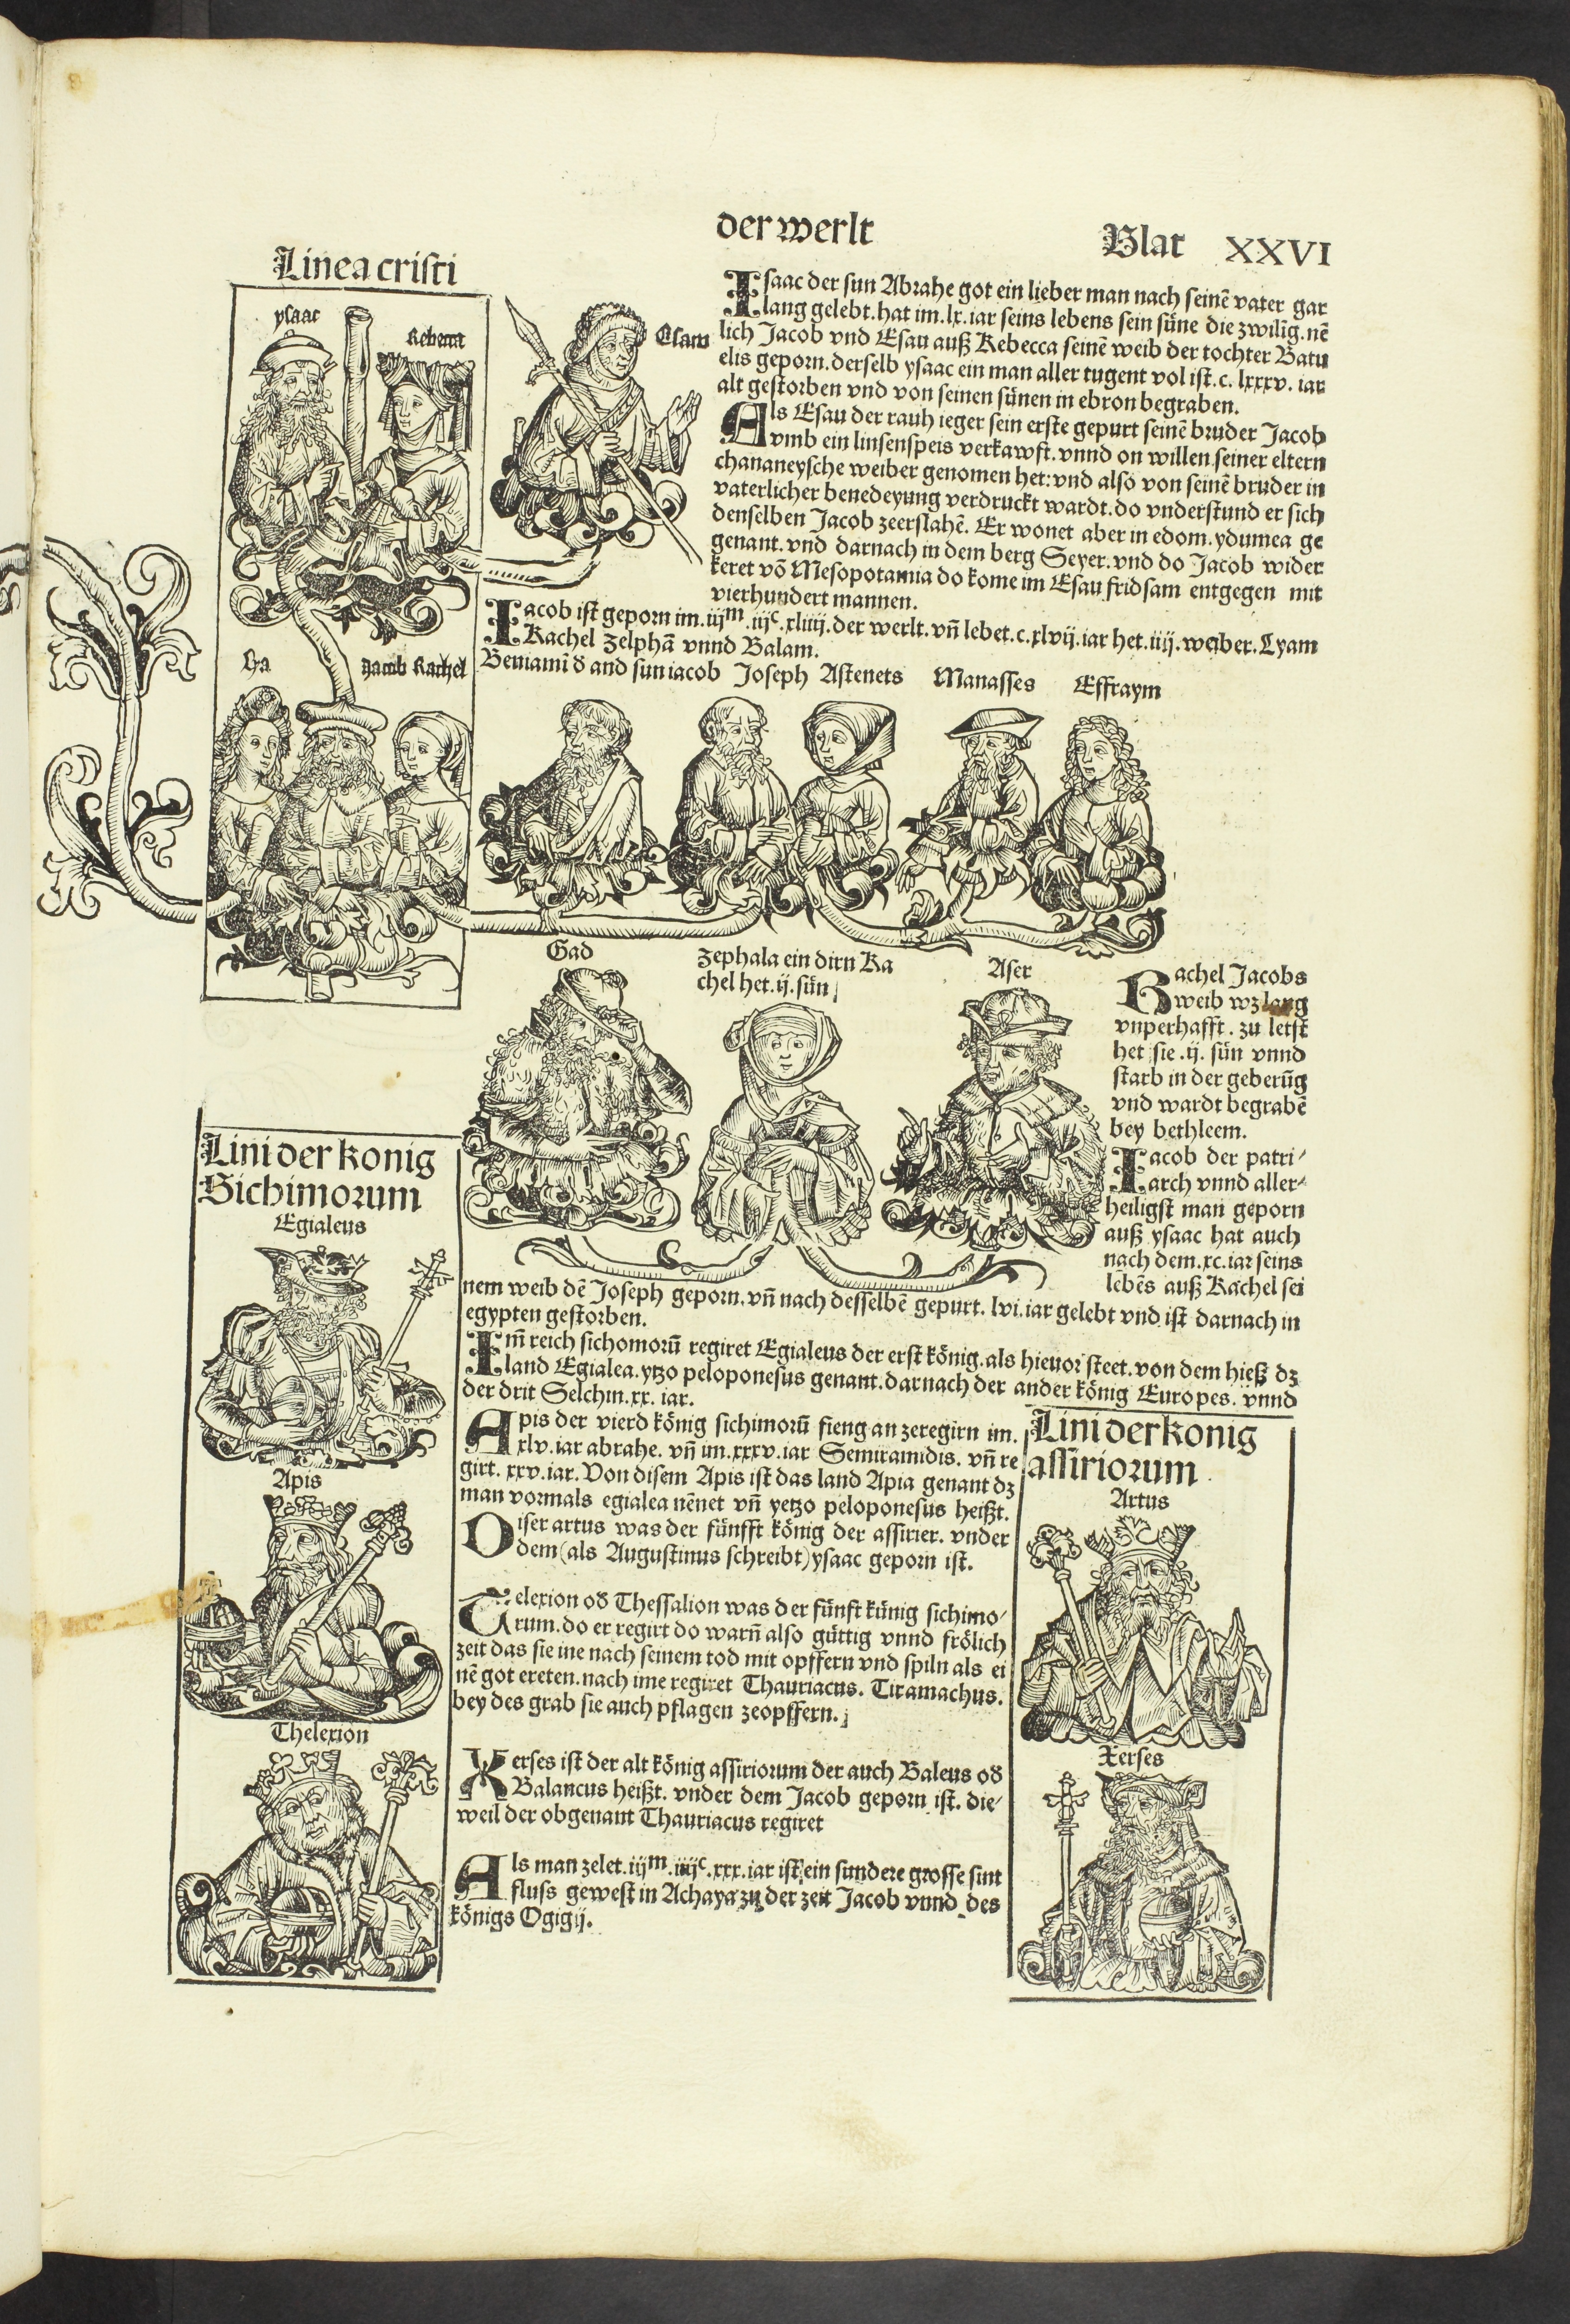 der werlt
Blat XXVI
Linea cristi
ysaac
Rebecca
Esaw
Isaac der sun Abrahe got ein lieber man nach seinē vater gar
lang gelebt. hat im .lx. iar seins lebens sein süne die zwilīg. nē
lich Jacob vnd Esau auß Rebecca seinē weib der tochter Batu
elis geporn. derselb ysaac ein man aller tugent vol ist .c. lxxxv. iar
alt gestorben vnd von seinen sünen in ebron begraben.
Als Esau der rauh ieger sein erste gepurt seinē bruder Jacob
vmb ein linsenspeis verkawft. vnnd on willen seiner eltern
chananeysche weiber genomen het: vnd also von seinē bruder in
vaterlicher benedeyung verdruckt wardt. do vnderstund er sich
denselben Jacob zeerslahē. Er wonet aber in edom. ydumea ge
genant. vnd darnach in dem berg Seyer. vnd do Jacob wider
keret vō Mesopotamia do kome im Esau fridsam entgegen mit
vierhundert mannen.
Jacob ist geporn im .iijm. iijc. xliiij. der werlt. vñ lebet .c.xlvij. iar het .iiij. weiber. Lyam
Rachel Zelphā vnnd Balam.
Lia
Jacob Rachel
Beniamī d̄ and sun iacob Joseph Astenets Manasses Effraym
Gad
Zephala ein dirn Ra
chel het .ij. sün
Aser
Rachel Jacobs
weib wz lang
vnperhafft. zu letst
het sie .ij. sün vnnd
starb in der geberūg
vnd wardt begrabē
bey bethleem.
Jacob der patri/
arch vnnd aller/
heiligst man geporn
auß ysaac hat auch
nach dem .xc. iar seins
lebēs auß Rachel sei
nem weib dē Joseph geporn. vñ nach desselbē gepurt. lvi. iar gelebt vnd ist darnach in
egypten gestorben.
Im̄ reich sichomorū regiret Egialeus der erst könig. als hieuor steet. von dem hieß dz
land Egialea. ytzo peloponesus genant. darnach der ander könig Europes. vnnd
der drit Selchin. xx. iar.
Apis der vierd könig sichimorū fieng an zeregirn im.
xlv. iar abrahe. vñ im .xxxv. iar Semiramidis. vñ re
girt. xxv. iar. Von disem Apis ist das land Apia genant dz
man vormals egialea nēnet vñ yetzo peloponesus heißt.
Diser artus was der fünfft könig der assirier. vnder
dem (als Augustinus schreibt) ysaac geporn ist.
Telexion od̄ Thessalion was der fünft künig sichimo/
rum. do er regirt do warn̄ also güttig vnnd frölich
zeit das sie ine nach seinem tod mit opffern vnd spiln als ei
nē got ereten. nach ime regiret Thauriacus. Tiramachus.
bey des grab sie auch pflagen zeopffern.
Xerses ist der alt könig assiriorum der auch Baleus od̄
Balancus heißt. vnder dem Jacob geporn ist. die/
weil der obgenant Thauriacus regiret
Als man zelet .iijm. iiijc. xxx. iar ist ein sundere grosse sint
fluss gewest in Achaya zu der zeit Jacob vnnd des
königs Ogigij.
Lini der konig
Sichimorum
Egialeus
Apis
Thelexion
Lini der konig
assiriorum
Artus
Xerses